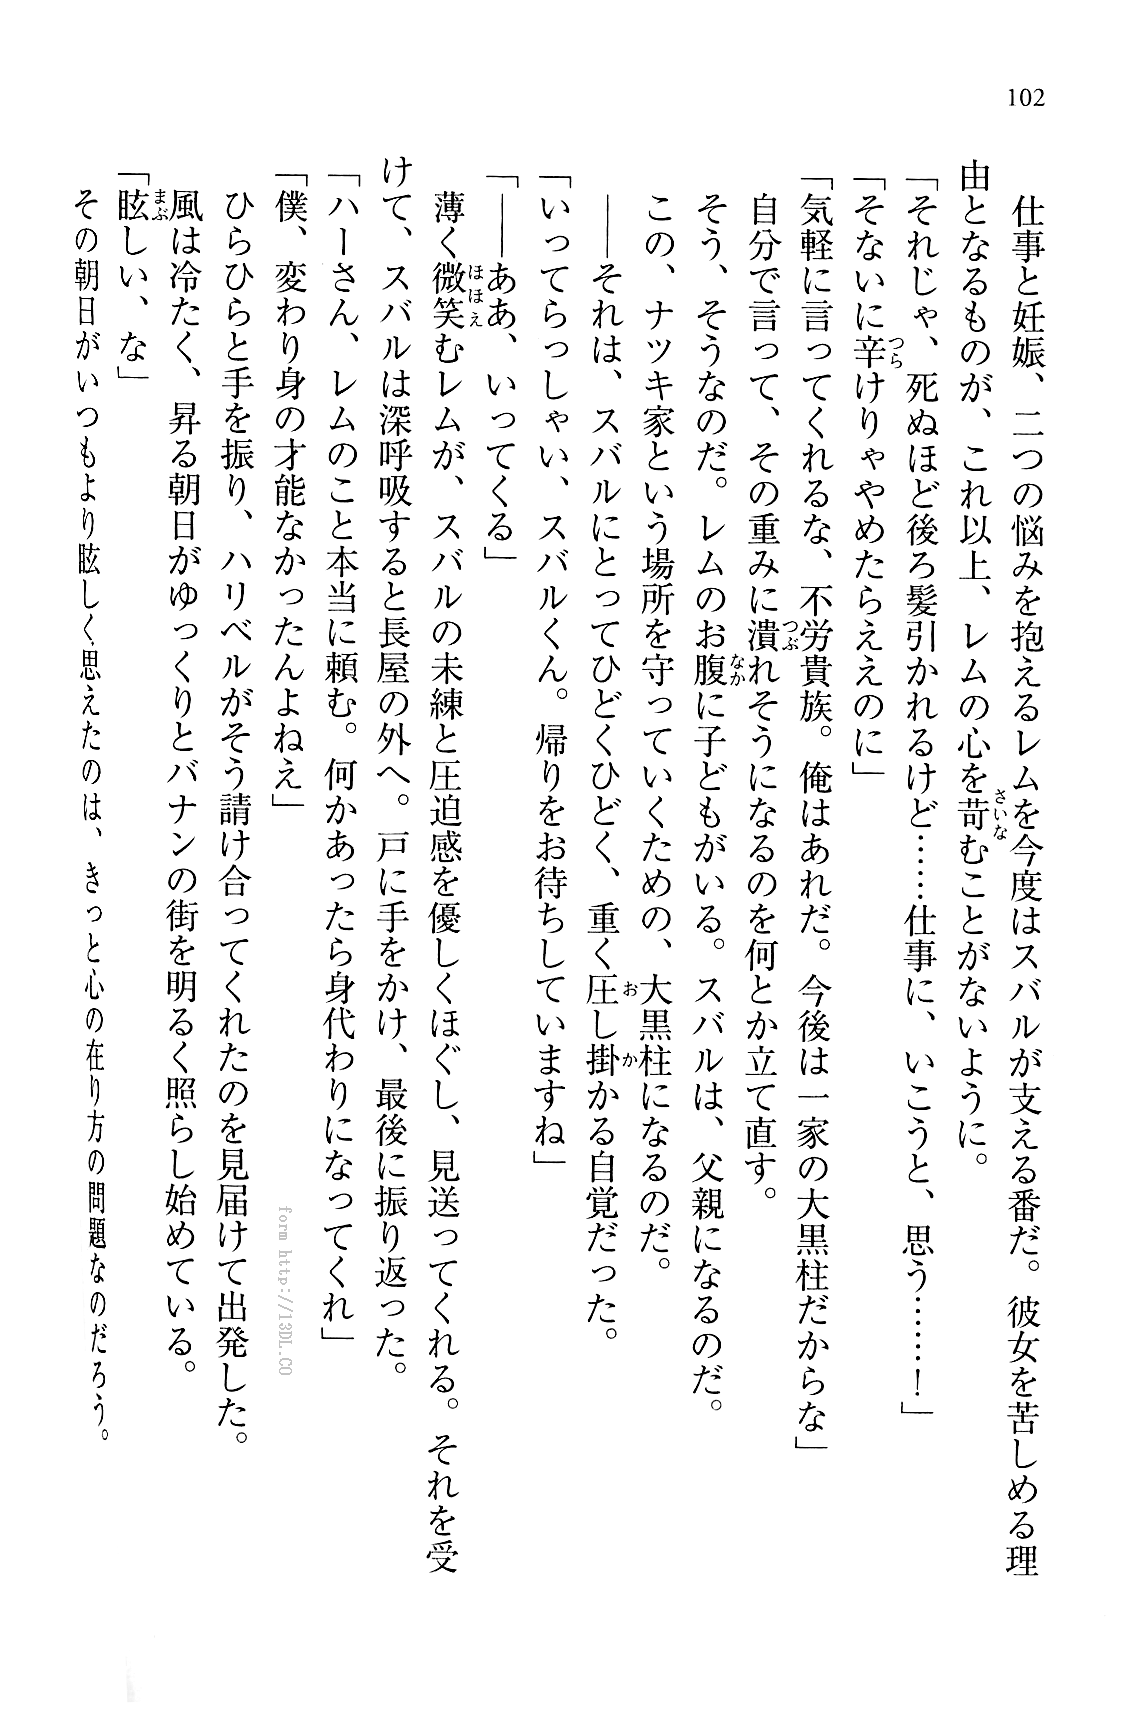 102
仕事と妊娠、二つの悩みを抱えるレムを今度はスバルが支える番だ。彼女を苦しめる理
由となるものが、これ以上、レムの心を苛むことがないように。
「それじゃ、死ぬほど後ろ髪引かれるけど……仕事に、いこうと、思う……！」
「そないに辛けりゃやめたらええのに」
「気軽に言ってくれるな、不労貴族。俺はあれだ。今後は一家の大黒柱だからな」
自分で言って、その重みに潰れそうになるのを何とか立て直す。
そう、そうなのだ。レムのお腹に子どもがいる。スバルは、父親になるのだ。
この、ナツキ家という場所を守っていくための、大黒柱になるのだ。
――それは、スバルにとってひどくひどく、重く圧し掛かる自覚だった。
「いってらっしゃい、スバルくん。帰りをお待ちしていますね」
「――ああ、いってくる」
薄く微笑むレムが、スバルの未練と圧迫感を優しくほぐし、見送ってくれる。それを受
けて、スバルは深呼吸すると長屋の外へ。戸に手をかけ、最後に振り返った。
「ハーさん、レムのこと本当に頼む。何かあったら身代わりになってくれ」
「僕、変わり身の才能なかったんよねえ」
ひらひらと手を振り、ハリベルがそう請け合ってくれたのを見届けて出発した。
風は冷たく、昇る朝日がゆっくりとバナンの街を明るく照らし始めている。
「眩しい、な」
その朝日がいつもより眩しく思えたのは、きっと心の在り方の問題なのだろう。
form http://13DL.CO